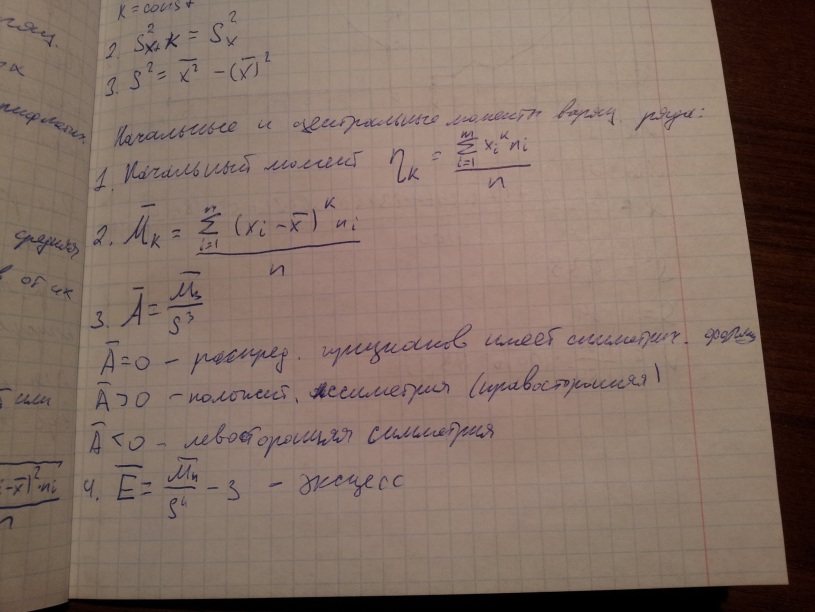 K = const
2. S²ₓ₊ₖ = S²ₓ
3. S² = x̄² − (x̄)²
Начальные и центральные моменты вариац. ряда:
1. Начальный момент η_K = Σ_{i=1}^{m} x_i^K n_i / n
2. M̄_K = Σ_{i=1}^{m} (x_i − x̄)^K n_i / n
3. Ā = M̄₃ / S³
Ā = 0 – распред. имеет симетрич. форму
Ā > 0 – положит. ассиметрия (правосторонняя)
Ā < 0 – левосторонняя симметрия
4. Ē = M̄₄ / S⁴ − 3 – эксцесс
средняя
от их
или